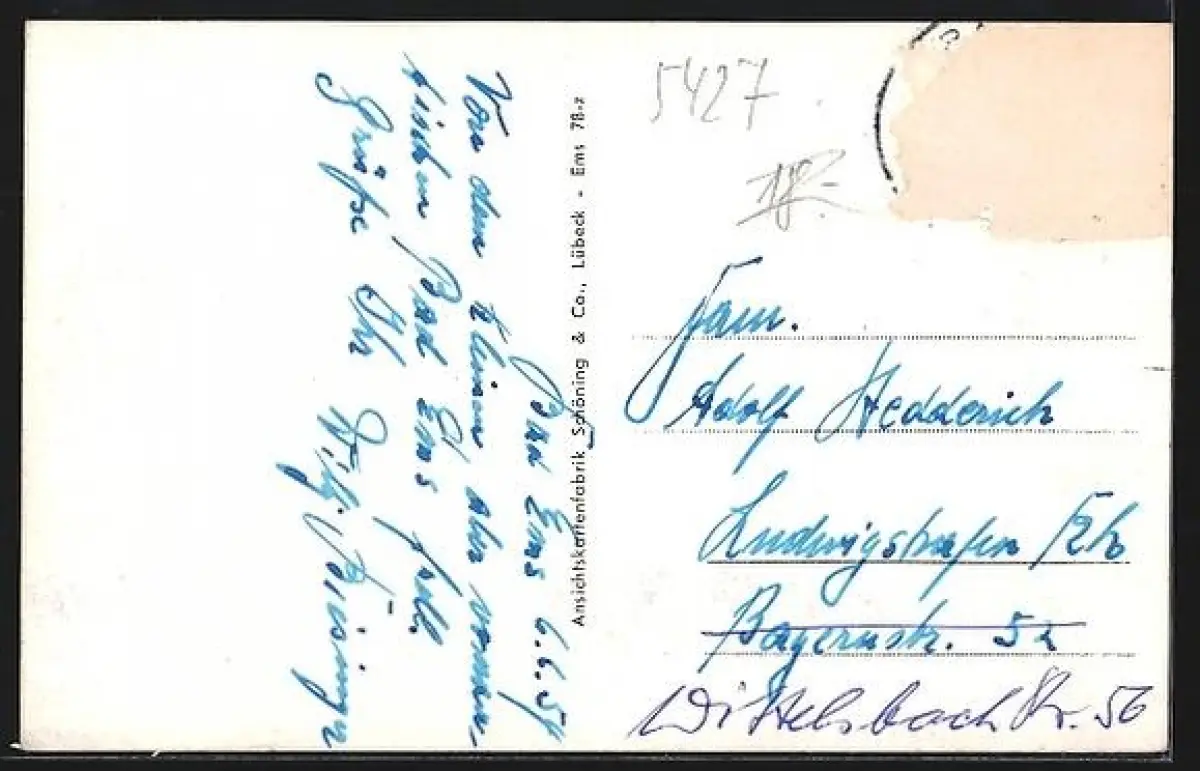 Bad Ems 6.6.54
Von dem kleinen aber vornehmen
Bad Ems
Grüße Ihr
Ansichtskartenfabrik Schöning & Co., Lübeck - Ems 78-z
5427
18,-
Fam.
Adolf Hedderich
Ludwigshafen / Rh
Bayernstr. 52
Wittelsbach Str. 56